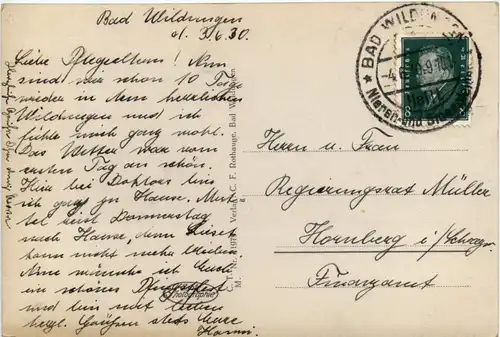 Bad Wildungen
d. 3.6.30.
Liebe Pflegeeltern! Nun
sind wir schon 10 Tage
wieder in dem herrlichen
Wildungen und ich
fühle mich ganz wohl.
Das Wetter war vom
ersten Tag an schön.
Hier bei Doktors bin
ich ganz zu Hause. Mut-
tel reist Donnerstag
nach Hause, denn
kann nicht mehr bleiben.
Nun wünsche ich Euch
ein schönes Pfingstfest
und bin mit lieben
herzl. Grüßen stets Eure
Hanni.
C. F. Rothauge, Bad Wildungen
Verlag
BAD WILDUNGEN
Herrn u. Frau
Regierungsrat Müller
Hornberg i/Schwarzw.
Finanzamt